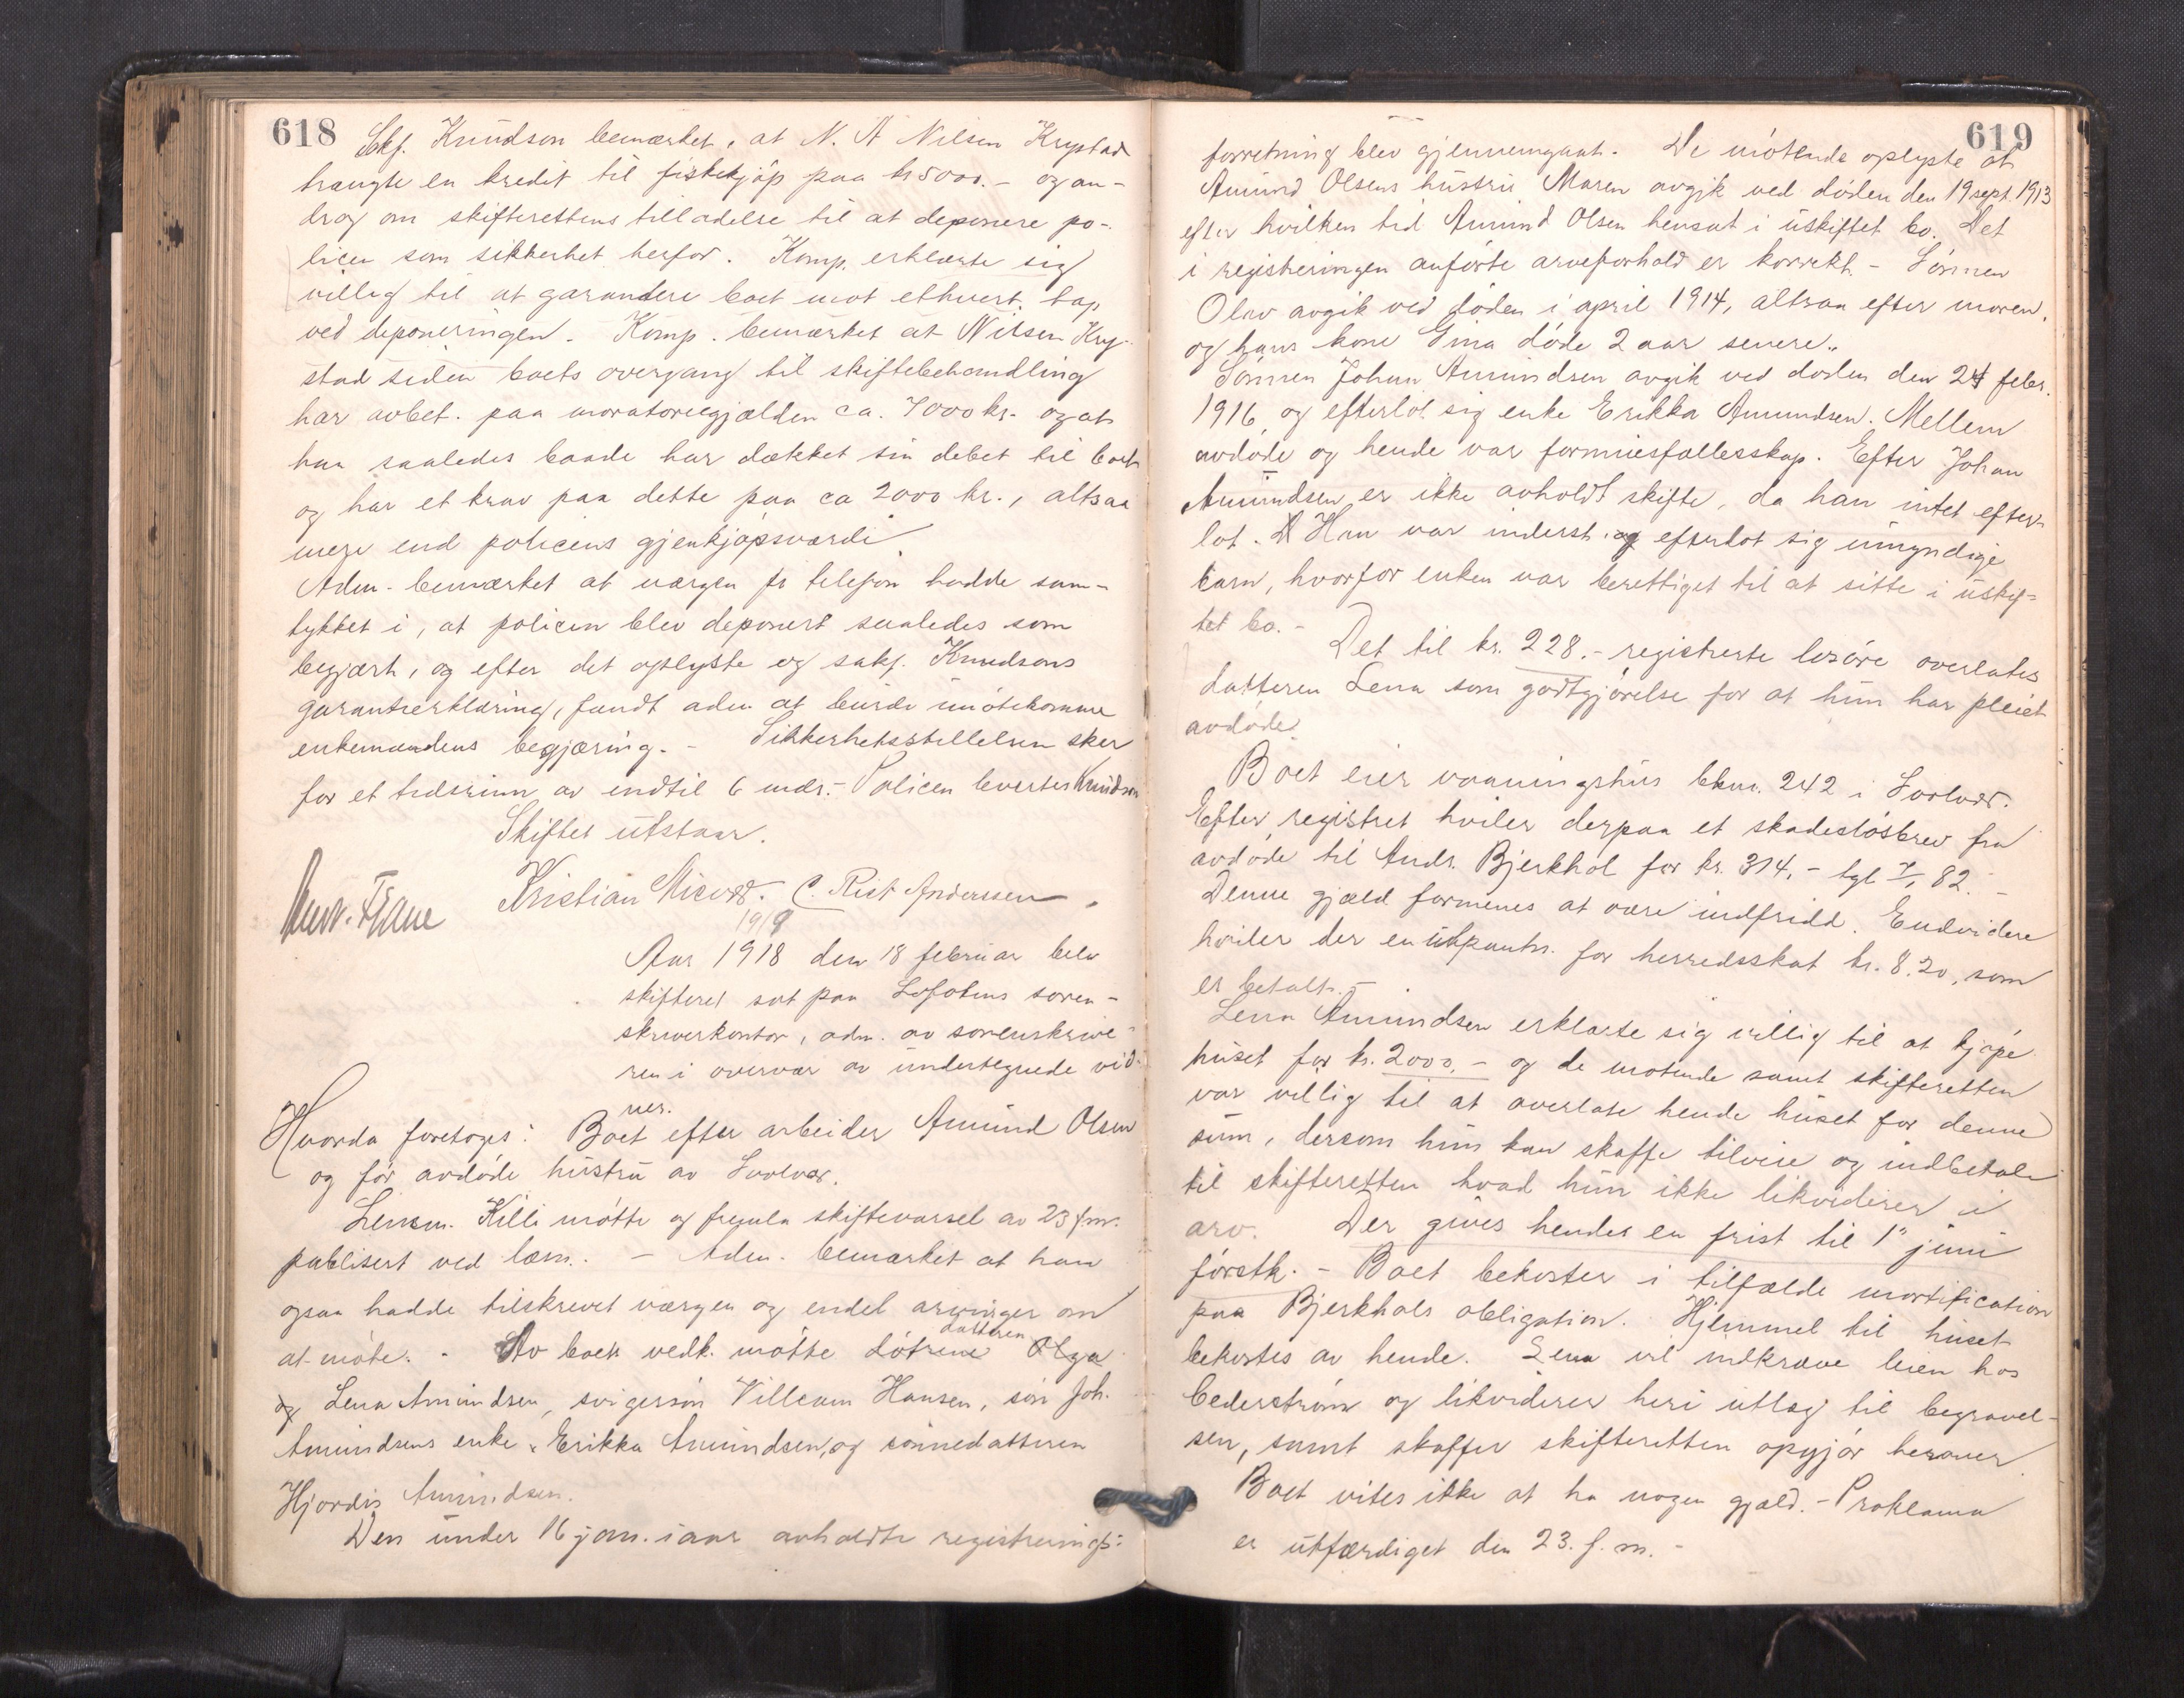 618
Skf. Knudson bemærket, at N. A Nilsen Krystad
trængte en kredit til fiskekjøp paa kr 5000.- og an-
drog om skifterettens tilladelse til at deponere po-
licen som sikkerhet herfor. Komp. erklærte sig
villig til at garandere boet mot ethvert tap
ved deponeringen. Komp. bemærket at Nilsen Kry-
stad siden boets overgang til skiftebehandling
har avbet. paa moratoriegjælden ca. 7000 kr. og at
han saaledes baade har dækket sin debet til boet
og har et krav paa dette paa ca 2000 kr., altsaa
mere end policens gjenkjøpsværdi.
Adm. bemærket at værgen pr telefon hadde sam-
tykket i, at policen blev deponert saaledes som
begjært, og efter det oplyste og sakf. Knudsons
garantierklæring, fandt adm at burde imøtekomme
enkemandens begjæring. - Sikkerhetsstillelsen sker
for et tidsrum av indtil 6 mdr.- Policen levertes Knudson
Skiftet utstaar.
Kristian C. Rist Anderssen.
1919
Aar 1918 den 18 februar blev
skifteret sat paa Lofotens soren-
skriverkontor, adm. av sorenskrive-
ren i overvær av undertegnede vid-
ner.
Hvorda foretoges: Boet efter arbeider Amund Olsen
og før avdøde hustru av Svolvær.
Lensm. Killi møtte og fremla skiftevarsel av 23 f.m.
publisert ved læsn. - Adm. bemærket at han
ogsaa hadde tilskrevet værgen og endel arvinger om
at møte. - Av boets vedk. møtte døtrene datteren Olga
og Lena Amundsen, svigersøn Villeam Hansen, søn Joh.
Amundsens enke Erikka Amundsen, og sønnedatteren
Hjordis Amundsen.
Den under 16 jan. iaar avholdte registrerings-
619
forretning blev gjennemgaat. De møtende oplyste at
Amund Olsens hustru Maren avgik ved døden den 19 sept. 1913
efter hvilken tid Amund Olsen hensat i uskiftet bo. Det
i registreringen anførte arveforhold er korrekt. - Sønnen
Olav avgik ved døden i april 1914, altsaa efter moren,
og hans kone Gina døde 2 aar senere.
Sønnen Johan Amundsen avgik ved døden den 24 febr.
1916, og efterlot sig enke Erikka Amundsen. Mellem
avdøde og hende var formuesfællesskap. Efter Johan
Amundsen er ikke avholdt skifte, da han intet efter-
lot. Han var inderst og efterlot sig umyndige
barn, hvorfor enken var berettiget til at sitte i uskif-
tet bo. -
Det til kr. 228.- registrerte løsøre overlates
datteren Lena som godtgjørelse for at hun har pleiet
avdøde.
Boet eier vaaningshus bknr. 242 i Svolvær.
Efter registret hviler derpaa et skadesløsbrev fra
avdøde til Andr. Bjerkhol for kr. 314,- tgl 7/1 82. -
Denne gjæld formenes at være indfridd. Endvidere
hviler der en utpantn. for herredsskat kr. 8.20, som
er betalt. -
Lena Amundsen erklærte sig villig til at kjøpe
huset for kr. 2000,- og de møtende samt skifteretten
var villig til at overlate hende huset for denne
sum, dersom hun kan skaffe tilveie og indbetale
til skifteretten hvad hun ikke likviderer i
arv. Der gives hende en frist til 1ste juni
førstk. - Boet bekoster i tilfælde mortification
paa Bjerkhols obligation. Hjemmel til huset
bekostes av hende. Lena vil indkræve leien hos
Cederstrøm og likviderer heri utlæg til begravel-
sen, samt skaffer skifteretten opgjør herover
Boet vites ikke at ha nogen gjæld. - Proklama
er utfærdiget den 23. f. m. -